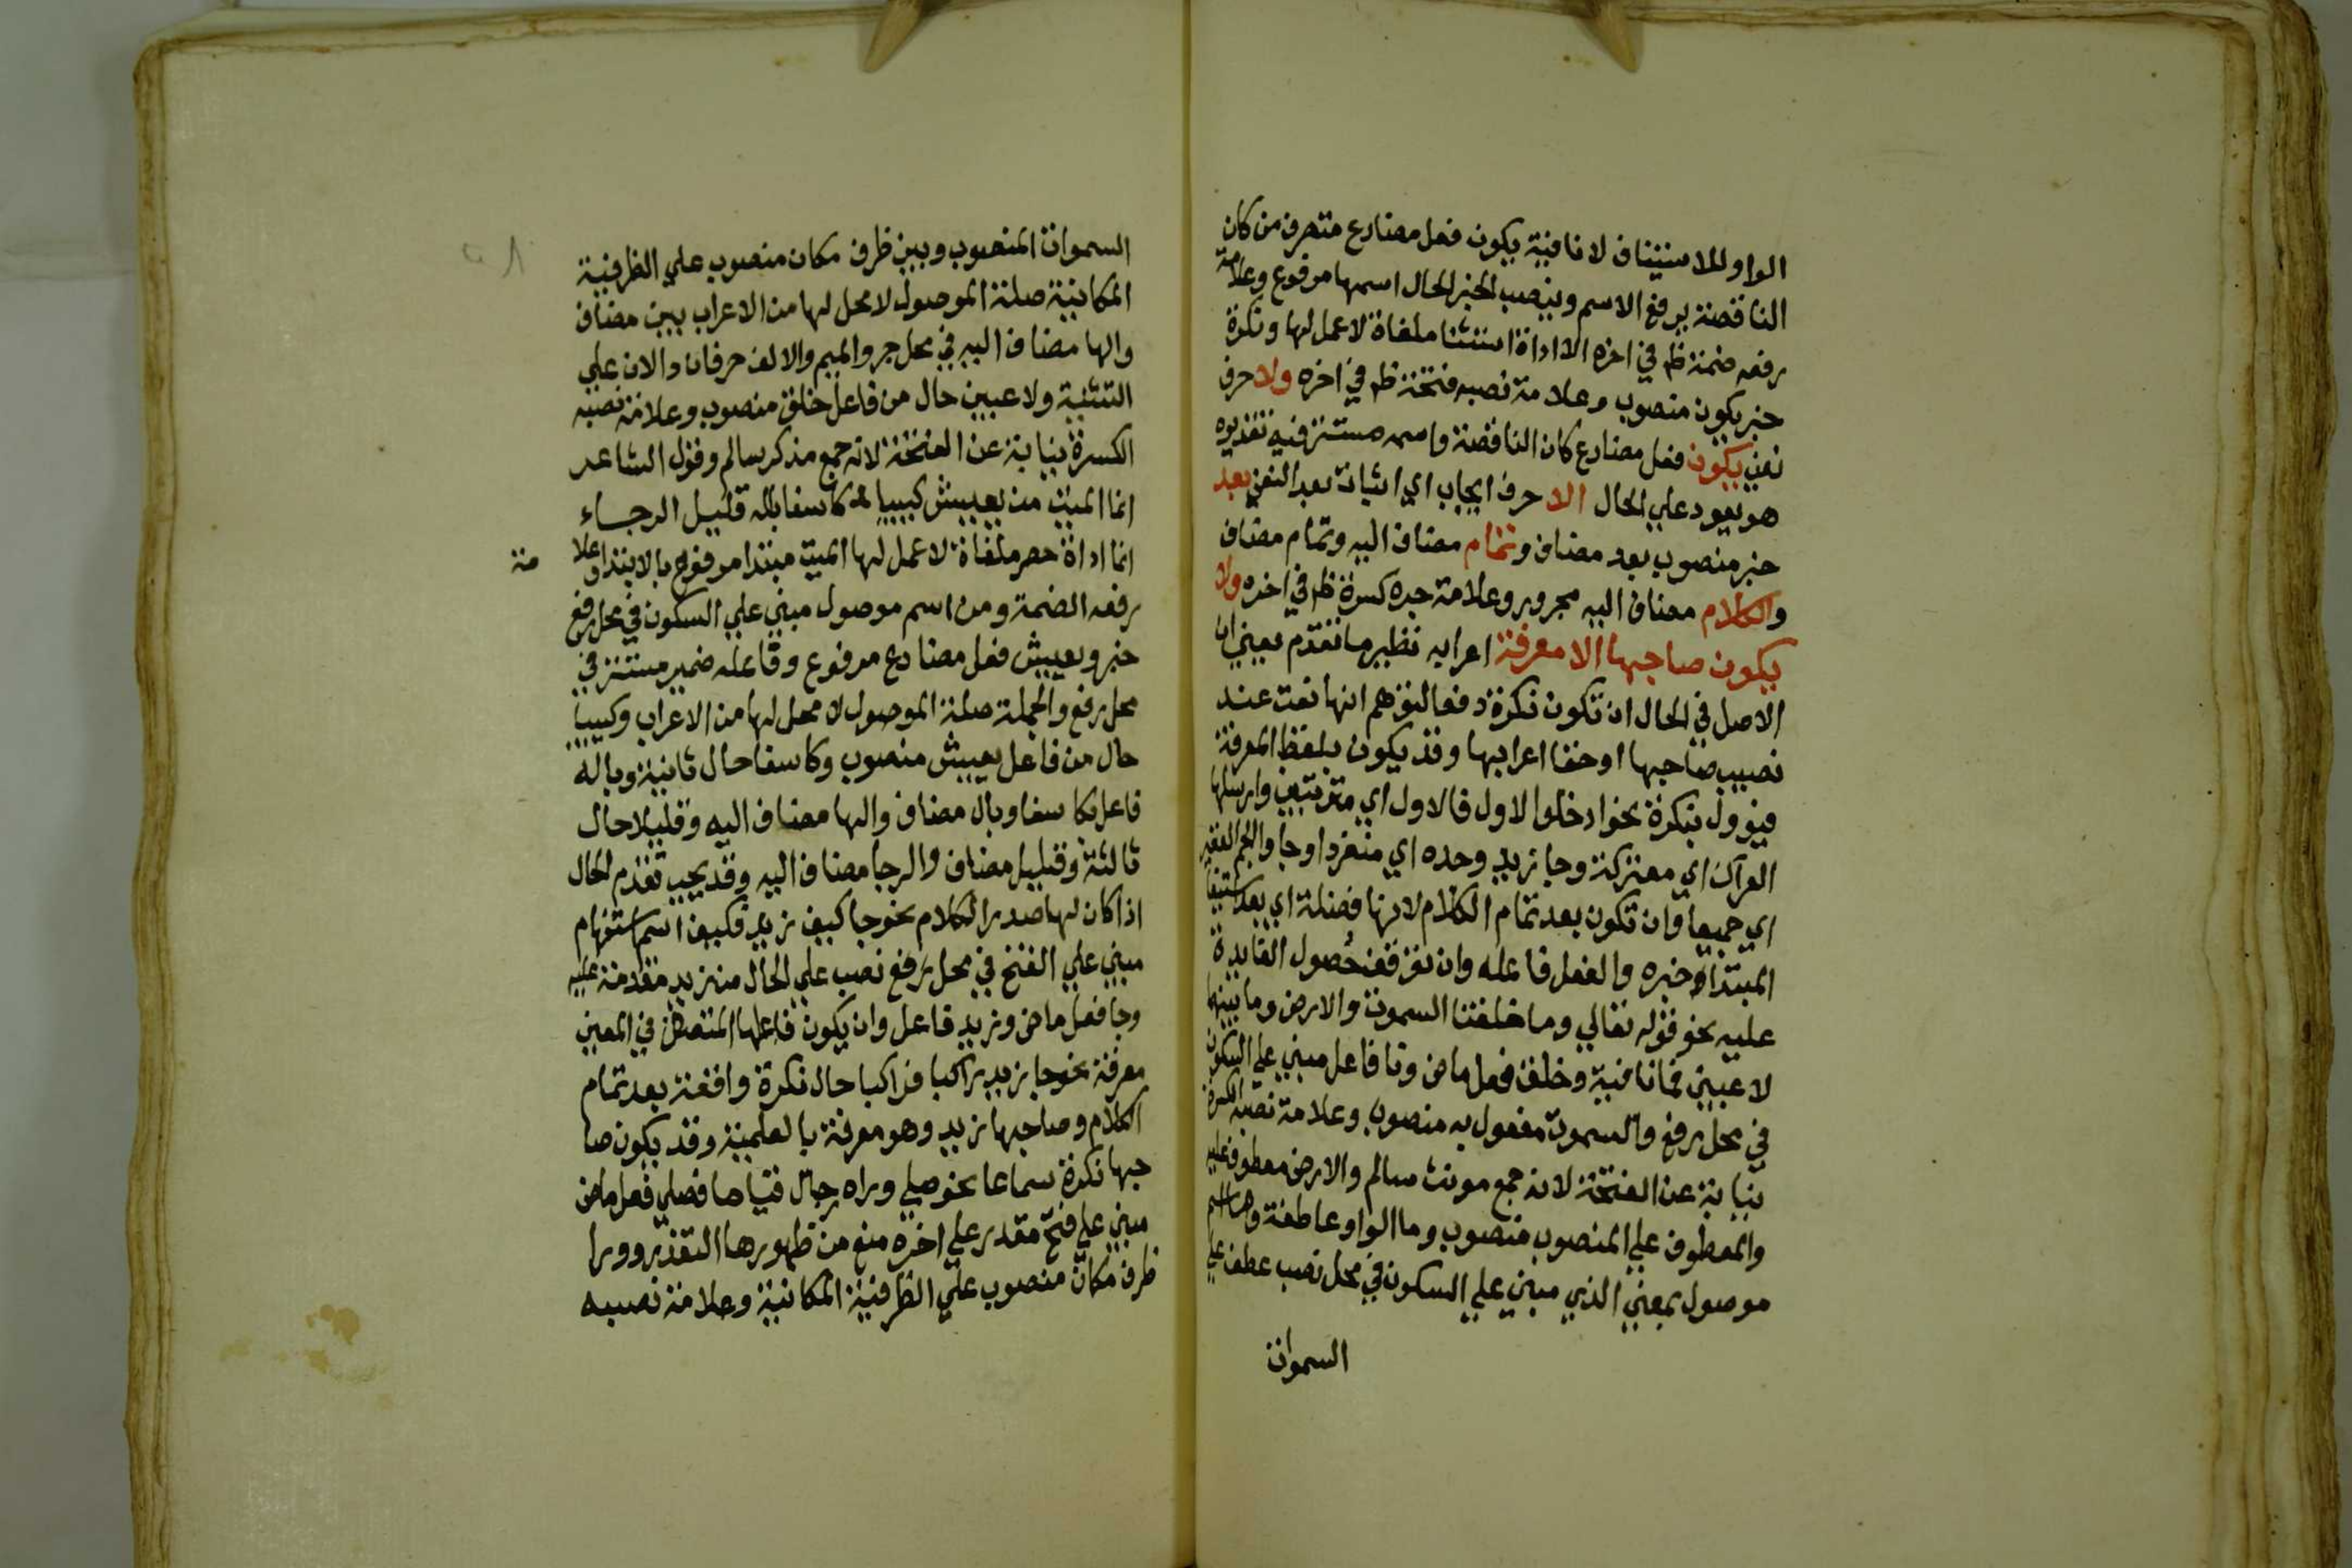 الواو للاستيناف لا نافية يكون فعل مضارع متصرف من كان
الناقصة يرفع الاسم وينصب الخبر الحال اسمها مرفوع وعلامة
رفعه ضمة ظ في اخره الا اداة استثنا ملغاة لا عمل لها ونكرة
خبر يكون منصوب وعلامة نصبه فتحة ظ في اخره ولا حرف
نفي يكون فعل مضارع كان الناقصة واسمه مستتر فيه تقديره
هو يعود علي الحال الا حرف ايجاب اي اثبات بعد النفي بعد
خبر منصوب بعد مضاف وتمام مضاف اليه وتمام مضاف
والكلام مضاف اليه مجرور وعلامة جره كسرة ظ في اخره ولا
يكون صاحبها الا معرفة اعرابه نظير ما تقدم يعني ان
الاصل في الحال ان تكون نكرة دفعا لتوهم انها نعت عند
نصب صاحبها او خفا اعرابها وقد يكون بلفظ المعرفة
فيوول بنكرة نحو ادخلوا الاول فالاول اي مترتبين وارسلها
العراك اي معتركة وجا زيد وحده اي منفردا وجاوا الجم الغفير
اي جميعا وان تكون بعد تمام الكلام لانها فضلة اي بعد استيفا
المبتدا وخبره والفعل فاعله وان توقف حصول الفايدة
عليه نحو قوله تعالي وما خلقنا السموت والارض وما بينهما
لاعبين فما نافية وخلق فعل ماض ونا فاعل مبني علي السكون
في محل رفع والسموت مفعول به منصوب وعلامة نصبه الكسرة
نيابة عن الفتحة لانه جمع مونث سالم والارض معطوف عليه
والمعطوف علي المنصوب منصوب وما الواو عاطفة وما اسم
موصول بمعني الذي مبني علي السكون في محل نصب عطف علي
السموات
السموات المنصوب وبين ظرف مكان منصوب علي الظرفية
المكانية صلة الموصول لا محل لها من الاعراب بين مضاف
والها مضاف اليه في محل جر والميم والالف حرفان دالان علي
التثنية ولاعبين حال من فاعل خلق منصوب وعلامة نصبه
الكسرة نيابة عن الفتحة لانه جمع مذكر سالم وقول الشاعر
انما الميت من يعيش كييبا كاسفا باله قليل الرجاء
انما اداة حصر ملغاة لا عمل لها الميت مبتدا مرفوع بالابتدا وعلا
مة
رفعه الضمة ومن اسم موصول مبني علي السكون في محل رفع
خبر ويعيش فعل مضارع مرفوع وفاعله ضمير مستتر في
محل رفع والجملة صلة الموصول لا محل لها من الاعراب وكييبا
حال من فاعل يعيش منصوب وكاسفا حال ثانية وباله
فاعل كاسفا وبال مضاف والها مضاف اليه وقليلا حال
ثالثة وقليل مضاف والرجا مضاف اليه وقد يجب تقدم الحال
اذا كان لها صدر الكلام نحو جا كيف زيد فكيف اسم استفهام
مبني علي الفتح في محل رفع نصب علي الحال من زيد مقدمة عليه
وجا فعل ماض وزيد فاعل وان يكون فاعلها المتصف في المعني
معرفة نحو جا زيد راكبا فراكبا حال نكرة واقعة بعد تمام
الكلام وصاحبها زيد وهو معرفة بالعلمية وقد يكون صا
حبها نكرة سماعا نحو صلي وراه رجال قياما فصلي فعل ماض
مبني علي فتح مقدر علي اخره منع من ظهورها التقذر وورا
ظرف مكان منصوب علي الظرفية المكانية وعلامة نصبه